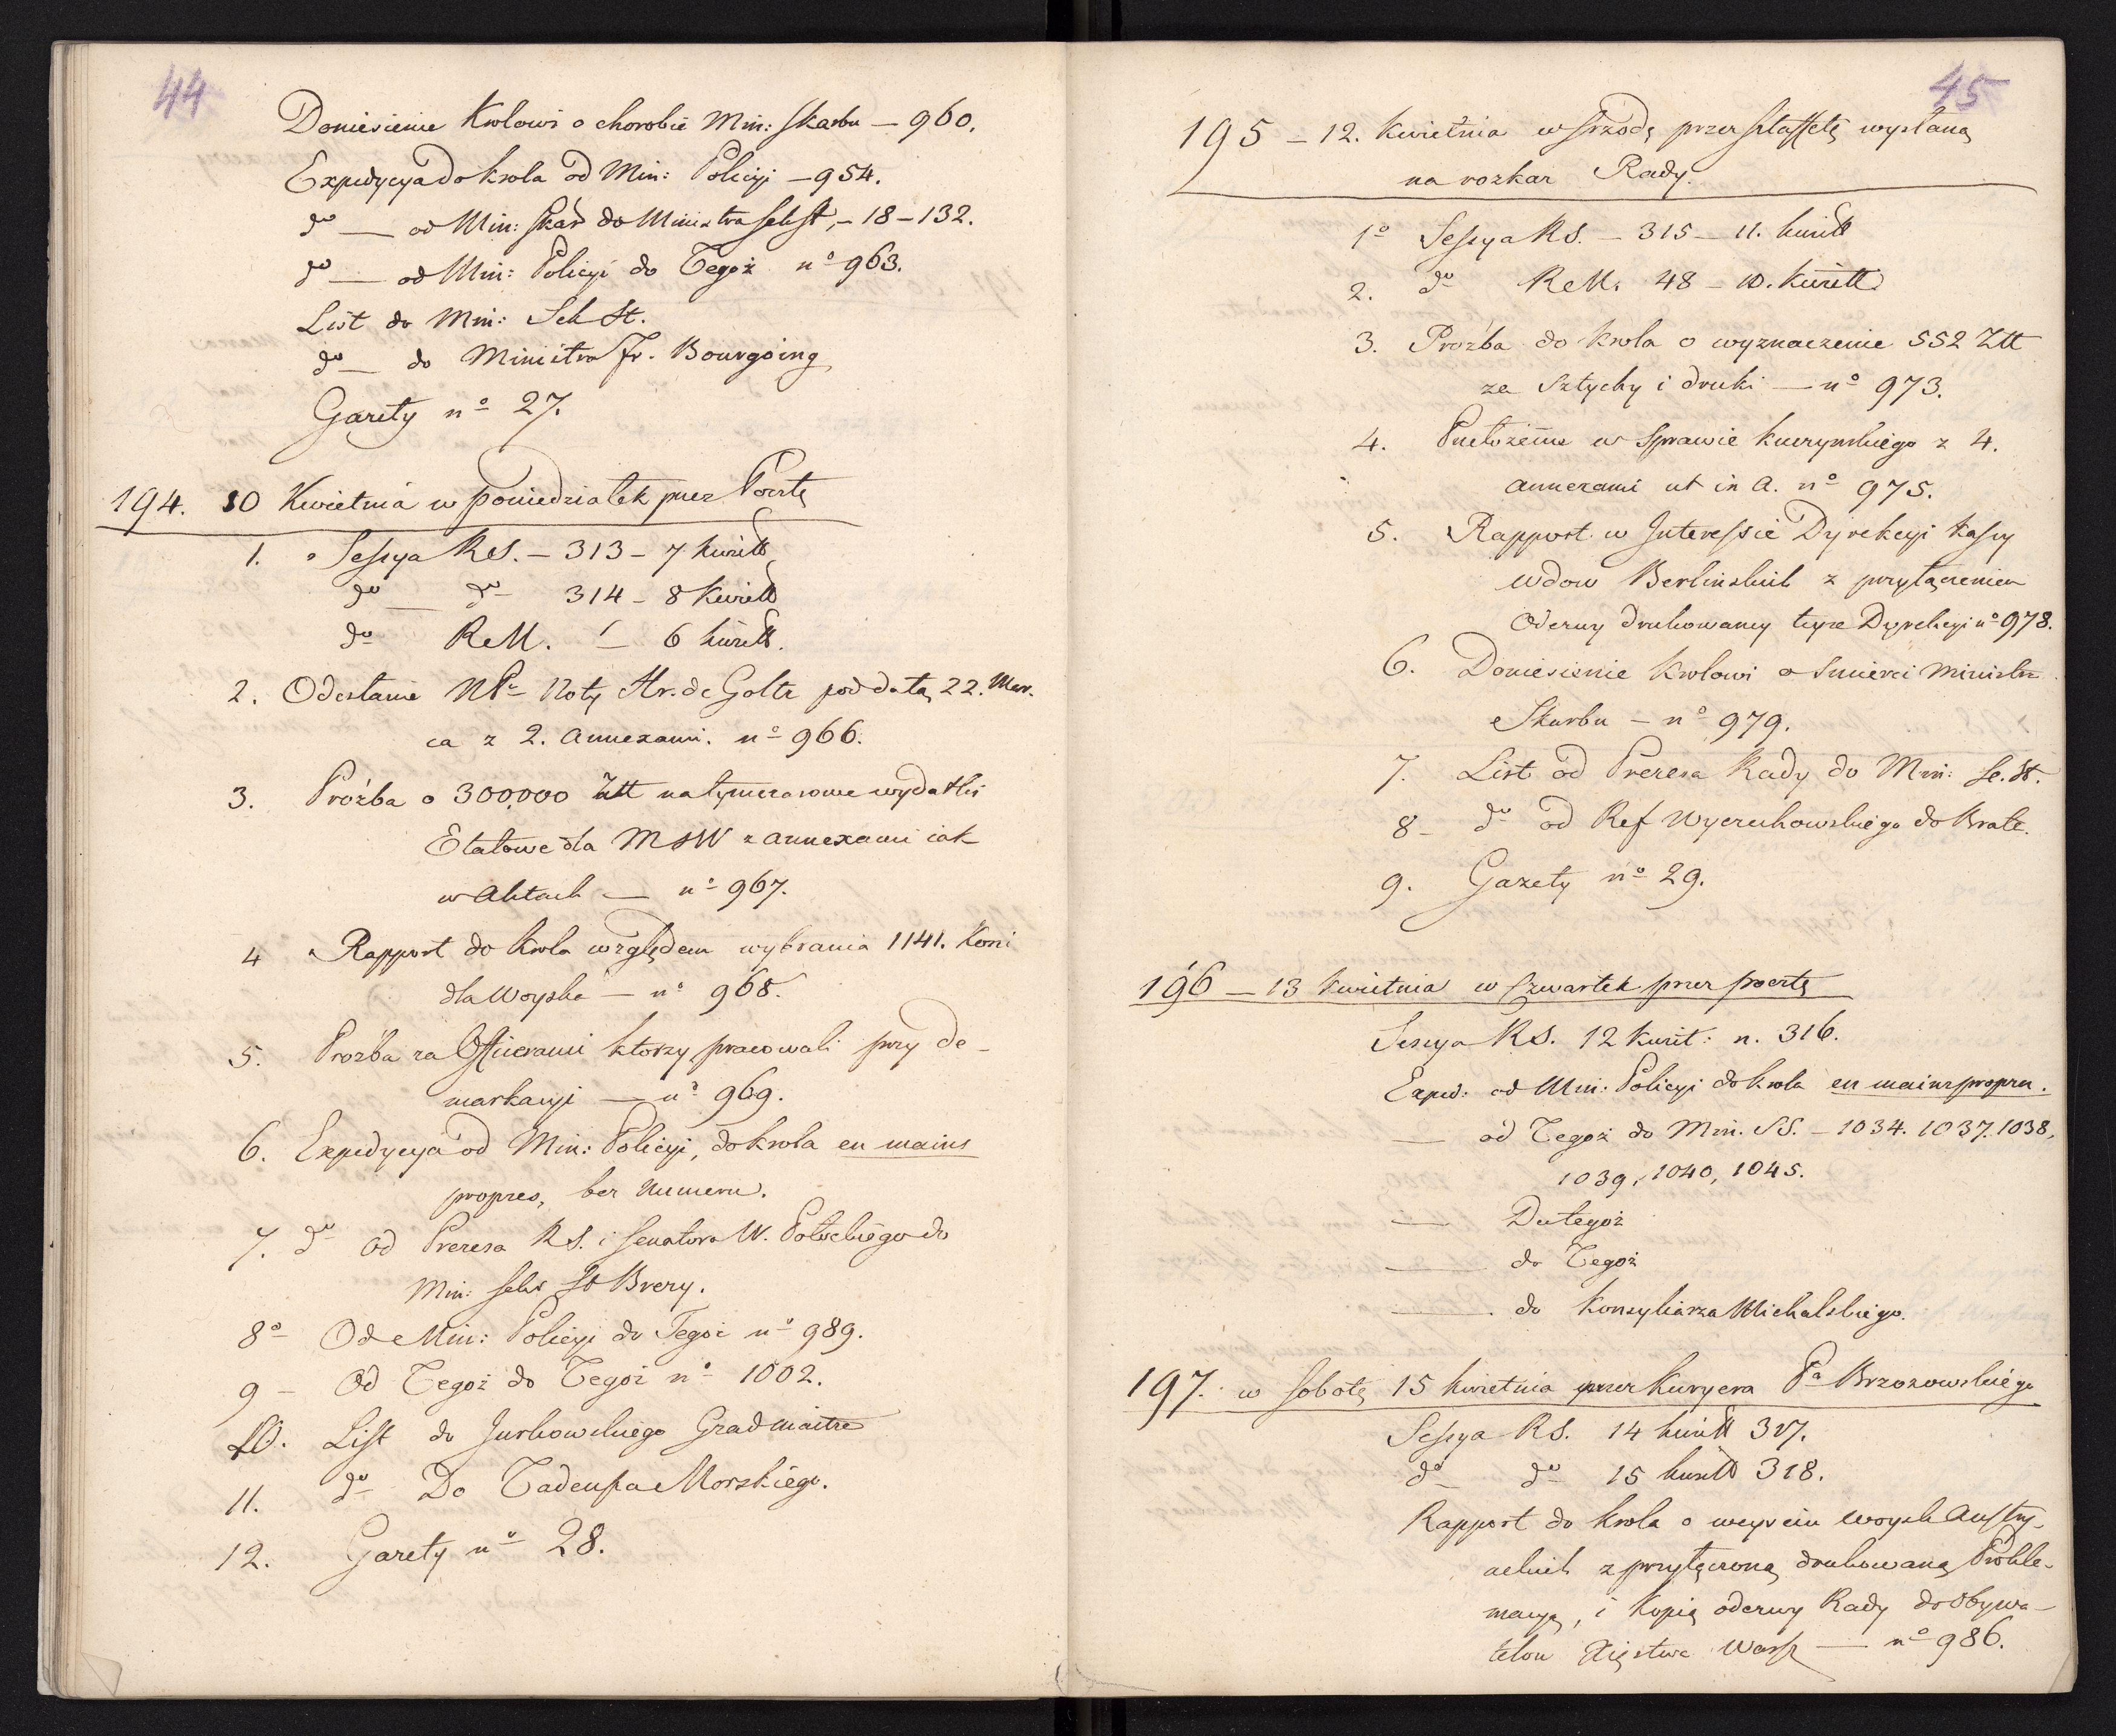 44
Doniesienie Krolowi o chorobie Min: Skarbu — 960.
Expedycya do Krola od Min: Policyi — 954.
do — od Min: Skar do Ministra SekSt, — 18 — 132.
do — od Min: Policyi do Tegoż nº 963.
List do Min: Sek St.
do — do Ministra Fr. Bourgoing
Gazety nº 27.
194. 10 Kwietnia w poniedzialek przez Pocztę
1. Sessya RS. — 313 — 7 kwiett
do — do 314 — 8 Kwiett
do RM. 1 — 6 kwiett.
2. Odesłanie Noty Hr. de Goltz pod datą 22. Mar-
ca z 2. Annexami. nº 966.
3. Proźba o 300,000 Ztt na tymczasowe wydatki
Etatowe dla MSW z annexami iak
w Aktach — nº 967.
4 Rapport do Krola względem wybrania 1141. Koni
dla Woyska — nº 968.
5. Proźba za Officerami ktorzy pracowali przy de-
markacyi — nº 969.
6. Expedycya od Min: Policyi, do Krola en mains
propres, bez Numeru.
7. do Od Prezesa RS. i Senatora W. Potockiego do
Min: Sekr St Brezy.
8º Od Min: Policyi do Tegoż nº 989.
9 — Od Tegoż do Tegoż nº 1002.
10. List do Jurkowskiego Gradmaitre
11. do Do Tadeusza Morskiego.
12. Gazety nº 28.
45
195 — 12. Kwietnia w srzodę przez sztaffetę wysłaną
na rozkaz Rady.
1º Sessya RS. — 315 — 11. kwiett
2. do RM. 48 — 10. Kwiett
3. Proźba do Krola o wyznaczenie 552 Ztt
za Sztychy i druki — nº 973.
4. Przełożenie w Sprawie Kuczynskiego z 4.
annexami ut in A. nº 975.
5. Rapport w Interessie Dyrekcyi kassy
wdow Berlinskich z przyłączeniem
Odezwy drukowaney teyże Dyrekcyi nº 978.
6. Doniesienie Krolowi o Smierci Ministra
Skarbu — nº 979.
7. List od Prezesa Rady do Min: Se. St.
8 — do od Ref Wyczechowskiego do Brata.
9. Gazety nº 29.
196 — 13 Kwietnia w Czwartek przez pocztę
Sessya RS. 12 Kwiet: n. 316.
Exped: od Min: Policyi do Krola en mains propres.
— od Tegoż do Min. SS. — 1034. 1037. 1038,
1039, 1040, 1045.
— Do tegoż
— do Tegoż
— do Konsyliarza Michalskiego.
197. w Sobotę 15 kwietnia przez Kuryera Pa Brzozowskiego
Sessya RS. 14 kwiett 317.
do do 15 kwiett 318.
Rapport do Krola o weyściu Woysk Austry-
ackich z przyłączoną drukowaną Prokla-
macyą, i kopią odezwy Rady do Obywa-
telow Xięstwa Warsz — nº 986.